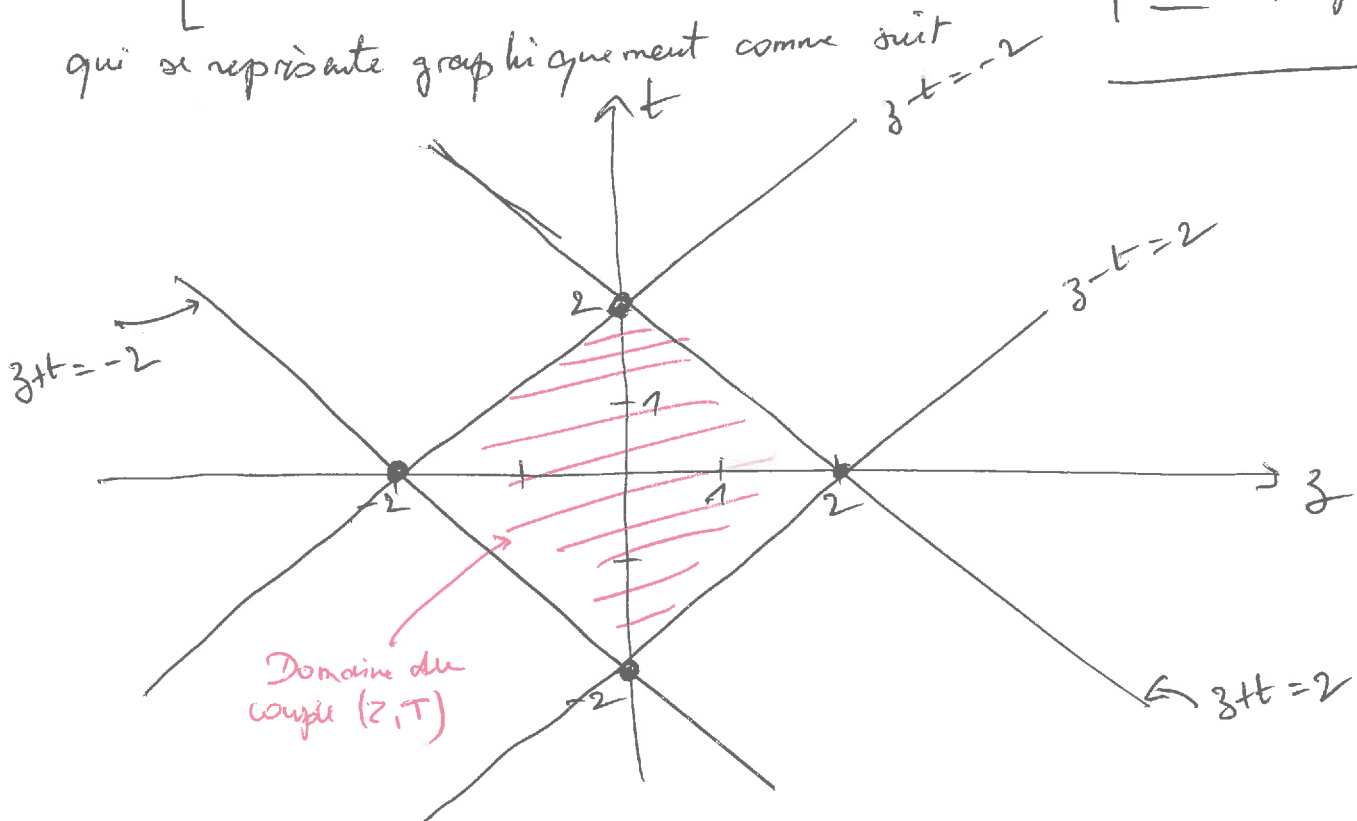 qui se représente graphiquement comme suit
t
z-t=-2
z-t=2
z+t=-2
2
1
-2
1
2
z
-2
z+t=2
Domaine du
couple (Z,T)